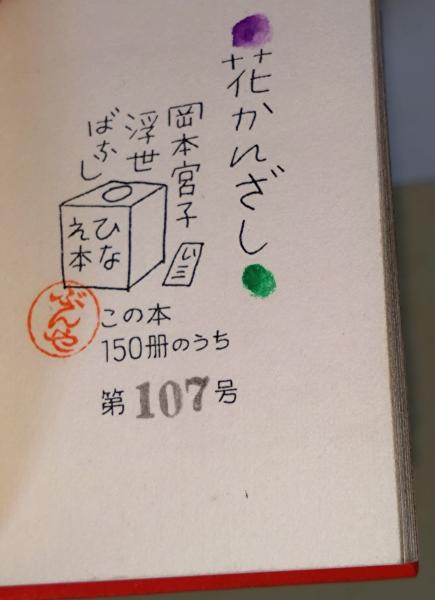 花かんざし
岡本宮子
浮世
ばなし
ひな
え本
ぶんや
この本
150冊のうち
第107号